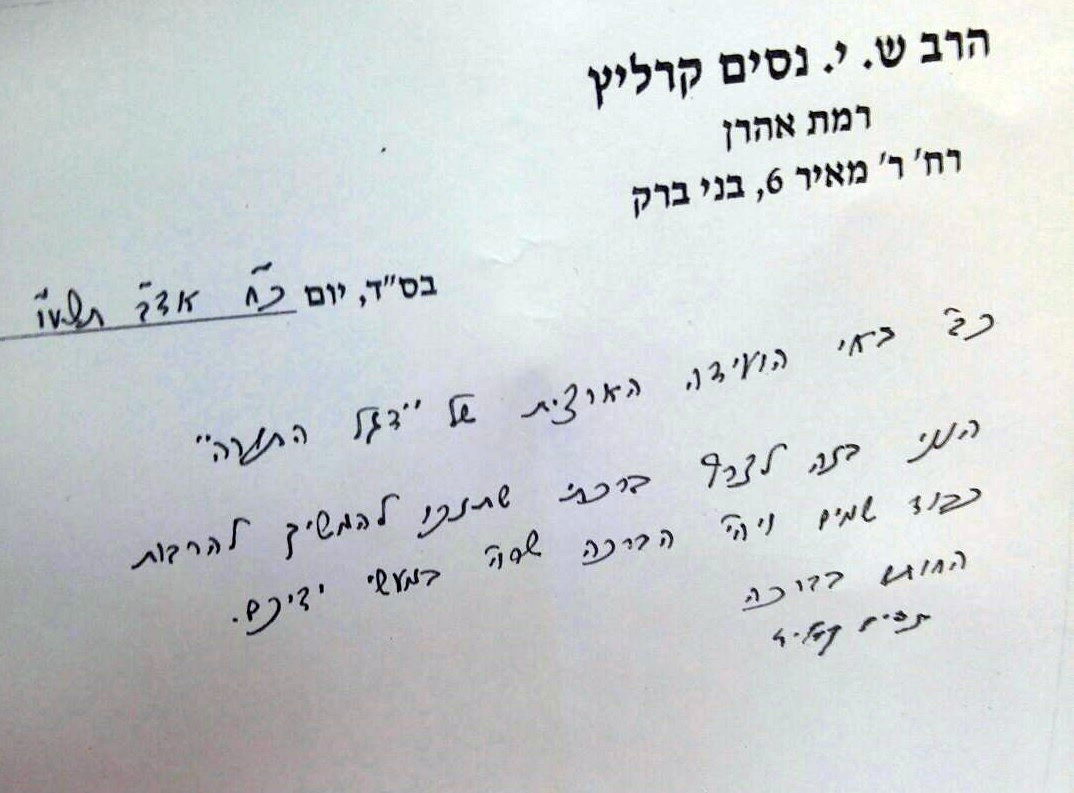 הרב ש. י. נסים קרליץ
רמת אהרן
רח' ר' מאיר 6, בני ברק
בס"ד, יום כ"ח אדר תשע"ו
כב' באי הועידה הארצית של "דגל התורה"
הנני בזה לצרף ברכתי שתזכו להמשיך להרבות
כבוד שמים ויה"י הברכה שרויה במעשי ידיכם.
החותם בברכה
נסים קרליץ